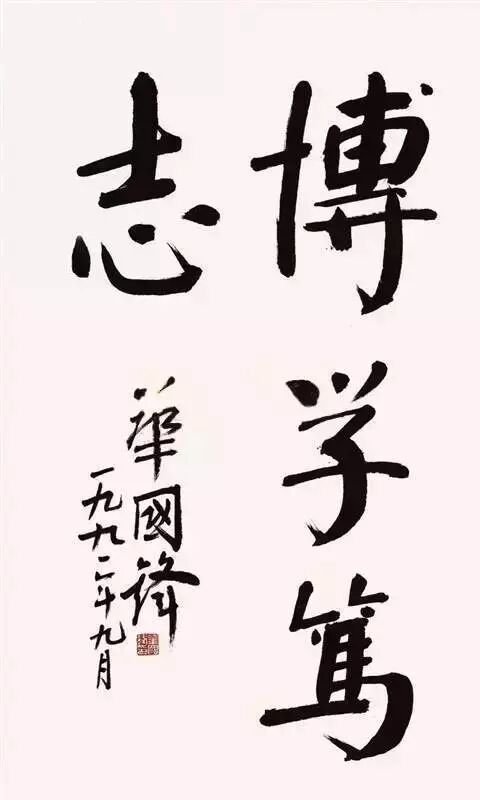 博学笃
志
華國鋒
一九九二年九月